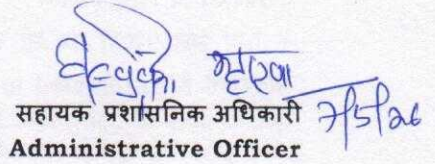 सहायक प्रशासनिक अधिकारी 7/5/26
Administrative Officer